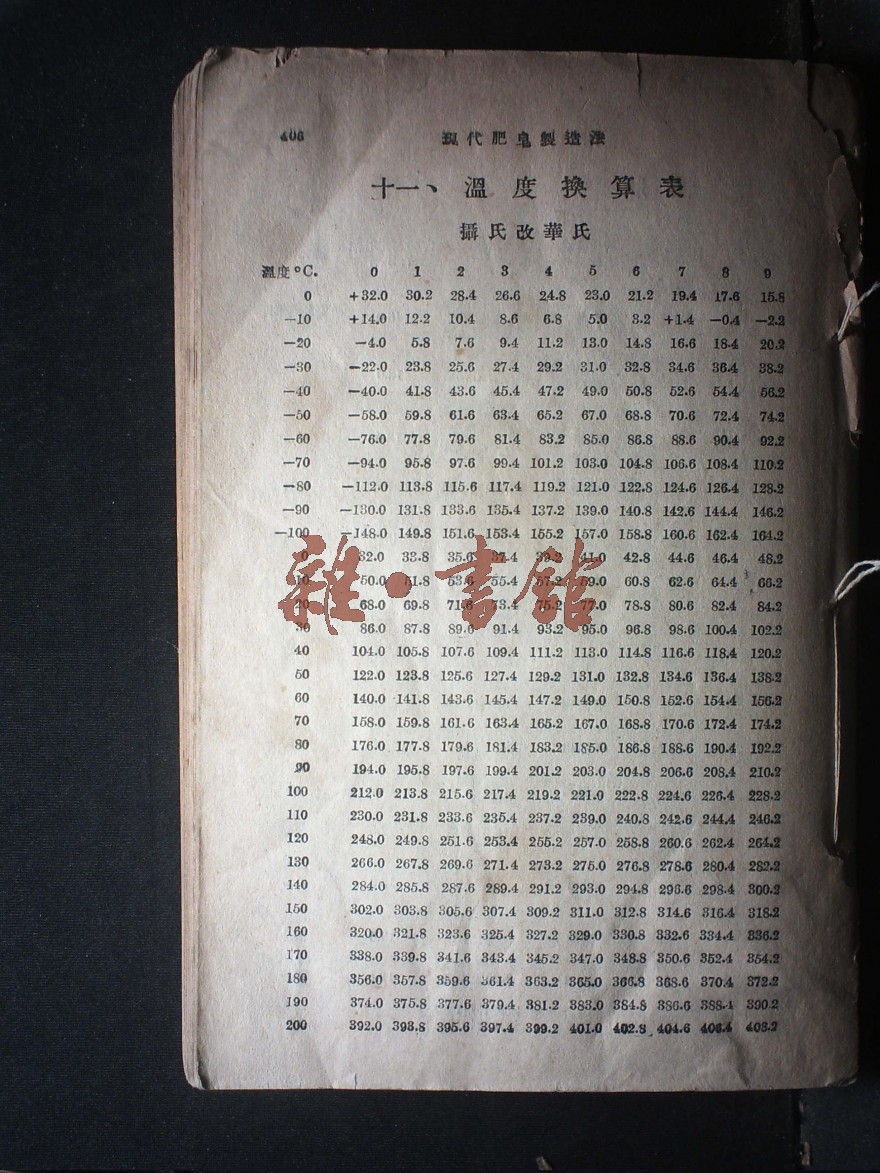 406 現代肥皂製造法
十一、溫度換算表
攝氏改華氏
溫度°C. 0 1 2 3 4 5 6 7 8 9
0 +32.0 30.2 28.4 26.6 24.8 23.0 21.2 19.4 17.6 15.8
—10 +14.0 12.2 10.4 8.6 6.8 5.0 3.2 +1.4 —0.4 —2.2
—20 —4.0 5.8 7.6 9.4 11.2 13.0 14.8 16.6 18.4 20.2
—30 —22.0 23.8 25.6 27.4 29.2 31.0 32.8 34.6 36.4 38.2
—40 —40.0 41.8 43.6 45.4 47.2 49.0 50.8 52.6 54.4 56.2
—50 —58.0 59.8 61.6 63.4 65.2 67.0 68.8 70.6 72.4 74.2
—60 —76.0 77.8 79.6 81.4 83.2 85.0 86.8 88.6 90.4 92.2
—70 —94.0 95.8 97.6 99.4 101.2 103.0 104.8 106.6 108.4 110.2
—80 —112.0 113.8 115.6 117.4 119.2 121.0 122.8 124.6 126.4 128.2
—90 —130.0 131.8 133.6 135.4 137.2 139.0 140.8 142.6 144.4 146.2
—100 —148.0 149.8 151.6 153.4 155.2 157.0 158.8 160.6 162.4 164.2
0 32.0 33.8 35.6 37.4 39.2 41.0 42.8 44.6 46.4 48.2
10 50.0 51.8 53.6 55.4 57.2 59.0 60.8 62.6 64.4 66.2
20 68.0 69.8 71.6 73.4 75.2 77.0 78.8 80.6 82.4 84.2
30 86.0 87.8 89.6 91.4 93.2 95.0 96.8 98.6 100.4 102.2
40 104.0 105.8 107.6 109.4 111.2 113.0 114.8 116.6 118.4 120.2
50 122.0 123.8 125.6 127.4 129.2 131.0 132.8 134.6 136.4 138.2
60 140.0 141.8 143.6 145.4 147.2 149.0 150.8 152.6 154.4 156.2
70 158.0 159.8 161.6 163.4 165.2 167.0 168.8 170.6 172.4 174.2
80 176.0 177.8 179.6 181.4 183.2 185.0 186.8 188.6 190.4 192.2
90 194.0 195.8 197.6 199.4 201.2 203.0 204.8 206.6 208.4 210.2
100 212.0 213.8 215.6 217.4 219.2 221.0 222.8 224.6 226.4 228.2
110 230.0 231.8 233.6 235.4 237.2 239.0 240.8 242.6 244.4 246.2
120 248.0 249.8 251.6 253.4 255.2 257.0 258.8 260.6 262.4 264.2
130 266.0 267.8 269.6 271.4 273.2 275.0 276.8 278.6 280.4 282.2
140 284.0 285.8 287.6 289.4 291.2 293.0 294.8 296.6 298.4 300.2
150 302.0 303.8 305.6 307.4 309.2 311.0 312.8 314.6 316.4 318.2
160 320.0 321.8 323.6 325.4 327.2 329.0 330.8 332.6 334.4 336.2
170 338.0 339.8 341.6 343.4 345.2 347.0 348.8 350.6 352.4 354.2
180 356.0 357.8 359.6 361.4 363.2 365.0 366.8 368.6 370.4 372.2
190 374.0 375.8 377.6 379.4 381.2 383.0 384.8 386.6 388.4 390.2
200 392.0 393.8 395.6 397.4 399.2 401.0 402.8 404.6 406.4 408.2
雜·書館